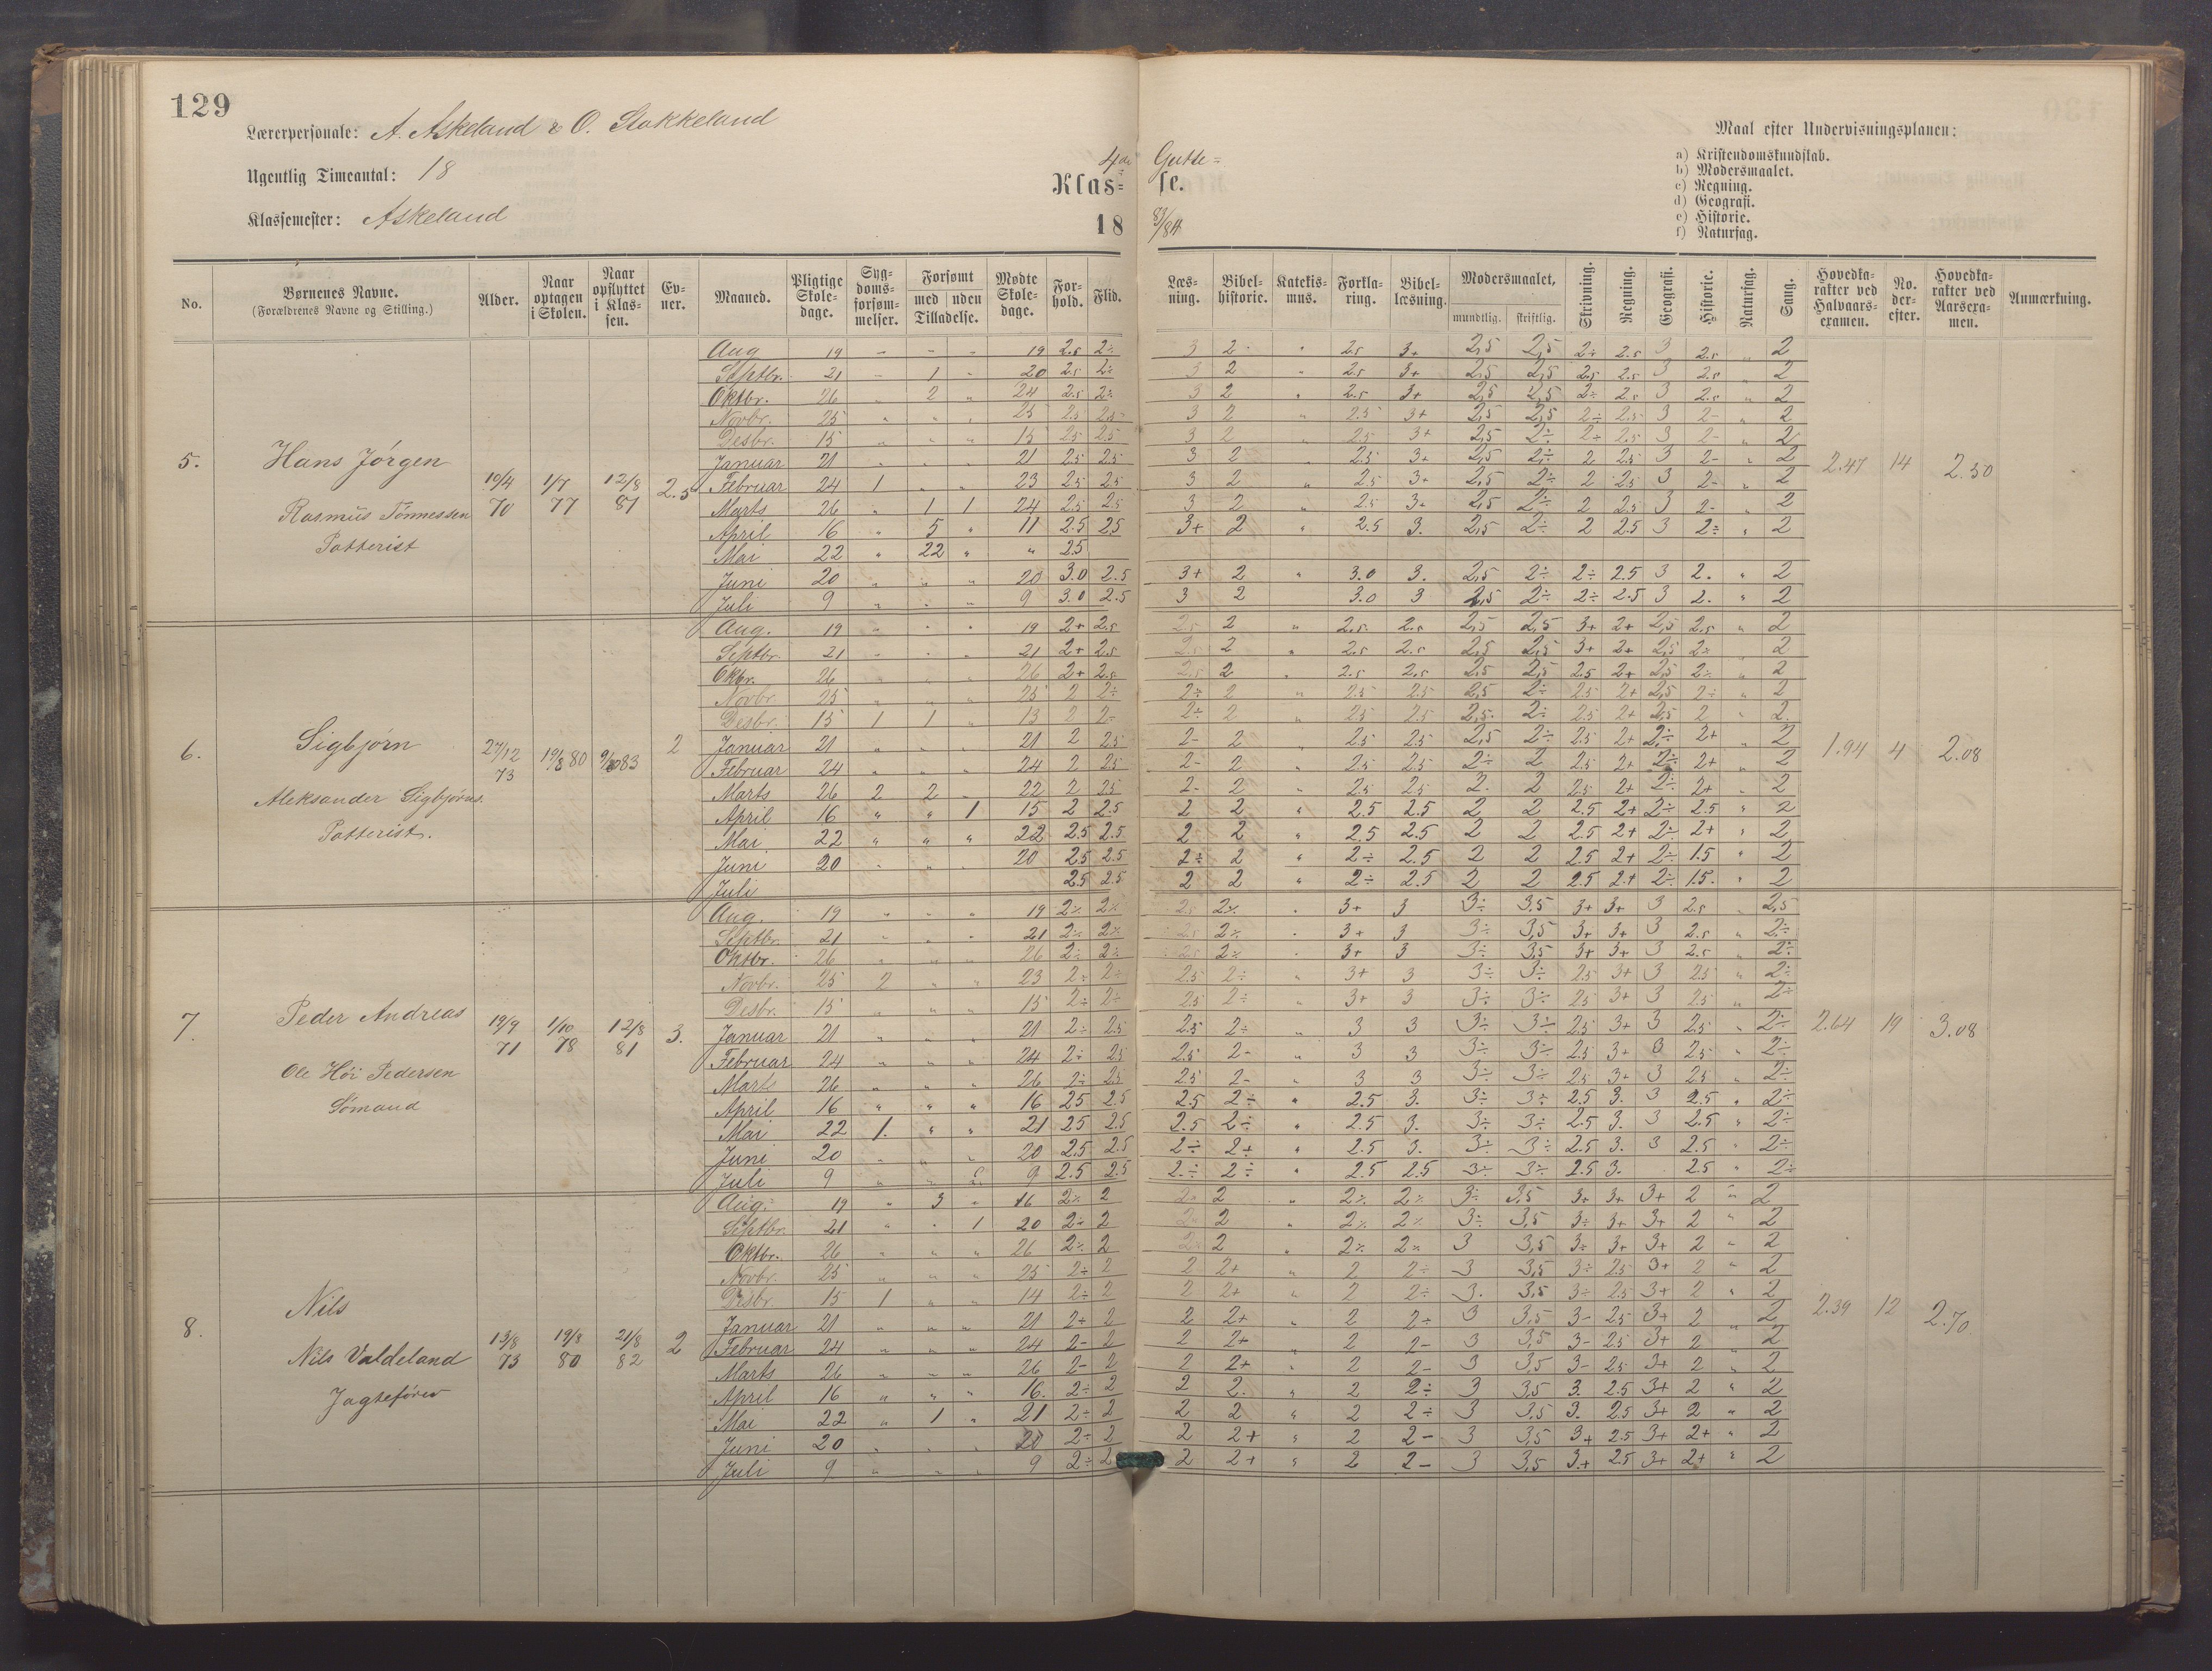 129
Lærerpersonale: A. Askeland & O. Stokkeland
Ugentlig Timeantal: 18
Klassemester: Askeland
4de Gutte=
Klas= se.
18 83/84
Maal efter Undervisningsplanen:
a) Kristendomskundskab.
b) Modersmaalet.
c) Regning.
d) Geografi.
e) Historie.
f) Naturfag.
No. Børnenes Navne. (Forældrenes Navne og Stilling.) Alder. Naar optagen i Skolen. Naar opflyttet i Klassen. Evner. Maaned. Pligtige Skoledage. Sygdomsforsømmelser. Forsømt med uden Tilladelse. Mødte Skoledage. Forhold. Flid. Læsning. Bibelhistorie. Katekismus. Forklaring. Bibellæsning. Modersmaalet, mundtlig. skriftlig. Skrivning. Regning. Geografi. Historie. Naturfag. Sang. Hovedkarakter ved Halvaarsexamen. No. derefter. Hovedkarakter ved Aarsexamen. Anmærkning.
5. Hans Jörgen
Rasmus Tönnessen
Potterist
10/4 70 1/7 77 12/8 81 2.5
Aug 19 " " " 19 2.5 2÷ 3 2- " 2.5 3+ 2,5 2,5 2÷ 2.5 3 2.5 " 2
Septbr. 21 " 1 " 20 2.5 2÷ 3 2 " 2.5 3+ 2,5 2,5 2.5 2.5 3 2.5 " 2
Oktbr. 26 " 2 " 24 2.5 2÷ 3 2 " 2.5 3+ 2,5 2,5 2÷ 2.5 3 2.5 " 2
Novbr. 25 " " " 25 2.5 2.5 3 2 " 2.5 3+ 2,5 2,5 2÷ 2.5 3 2- " 2
Desbr. 15 " " " 15 2.5 2.5 3 2 " 2.5 3+ 2,5 2÷ 2÷ 2.5 3 2- " 2
Januar 21 " " " 21 2.5 2.5 3 2 " 2.5 3+ 2,5 2÷ 2 2.5 3 2- " 2
Februar 24 1 " " 23 2.5 2.5 3 2 " 2.5 3+ 2,5 2÷ 2 2.5 3 2- " 2
Marts 26 " 1 1 24 2.5 2.5 3 2 " 2.5 3+ 2,5 2÷ 2 2.5 3 2- " 2
April 16 " 5 " 11 2.5 2.5 3+ 2 " 2.5 3. 2,5 2÷ 2 2.5 3 2÷ " 2
Mai 22 " 22 " " 2.5
Juni 20 " " " 20 3.0 2.5 3+ 2 " 3.0 3. 2,5 2÷ 2÷ 2.5 3 2. " 2
Juli 9 " " " 9 3.0 2.5 3 2 3.0 3 2,5 2÷ 2÷ 2.5 3 2. " 2
2.47 14 2.50
6. Sigbjörn
Aleksander Sigbjörns.
Potterist.
27/12 73 19/8 80 9/10 83 2
Aug. 19 " " " 19 2+ 2.5 2.5 2 " 2.5 2.5 2,5 2,5 3+ 2+ 2,5 2.5 " 2
Septbr. 21 " " " 21 2+ 2.5 2.5 2 " 2.5 2.5 2,5 2,5 3+ 2+ 2,5 2÷ " 2
Oktbr. 26 " " " 26 2+ 2.5 2.5 2 " 2.5 2.5 2,5 2,5 2.5 2+ 2,5 2÷ " 2
Novbr 25 " " " 25 2 2÷ 2÷ 2 " 2.5 2.5 2,5 2÷ 2.5 2+ 2,5 2÷ " 2
Desbr. 15 1 1 " 13 2 2- 2÷ 2 " 2.5 2.5 2,5 2÷ 2.5 2+ 2,5 2 " 2.
Januar 21 " " " 21 2 2.5 2- 2 " 2.5 2.5 2,5 2÷ 2.5 2+ 2÷ 2+ " 2
Februar 24 " " " 24 2 2.5 2- 2 " 2.5 2.5 2÷ 2 2.5 2+ 2÷ 2+ " 2
Marts 26 2 2 " 22 2 2.5 2- 2 " 2.5 2.5 2. 2 2.5 2+ 2÷ 2+ " 2
April 16 " " 1 15 2 2.5 2 2 " 2.5 2.5 2 2 2.5 2+ 2÷ 2.5 " 2
Mai 22 " " " 22 2.5 2.5 2 2 " 2.5 2.5 2 2 2.5 2+ 2÷ 2+ " 2
Juni 20 " " " 20 2.5 2.5 2÷ 2 " 2÷ 2.5 2 2 2.5 2+ 2÷ 1.5 " 2
Juli 2.5 2.5 2 2 " 2÷ 2.5 2 2 2.5 2+ 2÷ 1.5. " 2
1.94 4 2.08
7. Peder Andreas
Ole Höi Pedersen
Sömand
19/9 71 1/10 78 12/8 81 3.
Aug. 19 " " " 19 2÷ 2÷ 2.5 2÷ " 3+ 3 3÷ 3,5 3+ 3+ 3 2.5 " 2,5
Septbr. 21 " " " 21 2÷ 2÷ 2.5 2÷ " 3+ 3 3÷ 3,5 3+ 3+ 3 2.5 " 2÷
Oktbr. 26 " " " 26 2÷ 2÷ 2.5 2÷ " 3+ 3 3÷ 3,5 3+ 3+ 3 2.5 " 2÷
Novbr. 25 2 " " 23 2÷ 2÷ 2.5 2÷ " 3+ 3 3÷ 3÷ 2.5 3+ 3 2.5 " 2÷
Desbr. 15 " " " 15 2÷ 2÷ 2.5 2÷ " 3+ 3 3÷ 3÷ 2.5 3+ 3 2.5 " 2÷
Januar 21 " " " 21 2÷ 2.5 2.5 2÷ " 3 3 3÷ 3÷ 2.5 3+ 3 2.5 " 2÷
Februar 24 " " " 24 2÷ 2.5 2.5 2- " 3 3 3÷ 3÷ 2.5 3+ 3 2.5 " 2÷
Marts 26 " " " 26 2÷ 2.5 2.5 2- " 3 3 3÷ 3÷ 2.5 3+ 3 2.5 " 2÷
April 16 " " " 16 2.5 2.5 2.5 2÷ " 2.5 3. 3÷ 3÷ 2.5 3. 3 2.5 " 2÷
Mai 22 1. " " 21 2.5 2.5 2.5 2÷ " 2.5 3. 3÷ 3÷ 2.5 3. 3 2.5 " 2÷
Juni 20 " " " 20 2.5 2.5 2÷ 2+ " 2.5 3. 3÷ 3÷ 2.5 3. 3 2.5 " 2÷
Juli 9 " " " 9 2.5 2.5 2÷ 2÷ " 2.5 2.5 3÷ 3÷ 2.5 3. 2.5 " 2÷
2.64 19 3.08
8. Nils
Nils Valdeland
Jagtefører
13/8 73 19/8 80 21/8 82 2
Aug: 19 " 3 " 16 2÷ 2 2 " 2÷ 2÷ 3÷ 3,5 3+ 3+ 3+ 2 " 2
Septbr. 21 " " 1 20 2÷ 2 2 " 2÷ 2÷ 3÷ 3,5 3÷ 3+ 3+ 2 " 2
Oktbr. 26 " " " 26 2÷ 2 2 " 2÷ 2÷ 3 3,5 3÷ 3+ 3+ 2 " 2
Novbr. 25 " " " 25 2÷ 2 2 2+ " 2 2÷ 3 3,5 3÷ 2.5 3+ 2 " 2
Desbr. 15 1 " " 14 2÷ 2 2 2+ " 2 2÷ 3. 3,5 3÷ 2.5 3+ 2 " 2
Januar 21 " " " 21 2÷ 2 2 2+ " 2 2÷ 3 3,5 3- 2.5 3+ 2 " 2
Februar 24 " " " 24 2- 2 2 2+ " 2 2- 3 3,5 3- 2.5 3+ 2 " 2
Marts 26 " " " 26 2- 2 2 2+ " 2 2- 3 3,5 3- 2.5 3+ 2 " 2
April 16 " " " 16. 2÷ 2 2 2. " 2 2÷ 3 3,5 3. 2.5 3+ 2 " 2
Mai 22 " 1 " 21 2÷ 2 2 2 " 2 2÷ 3 3,5 3. 2.5 3+ 2 " 2
Juni 20 " " " 20 2÷ 2 2 2+ " 2 2- 3 3,5 3+ 2.5 3+ 2+ " 2
Juli 9 " " " 9 2÷ 2 2 2+ " 2 2- 3 3,5 3+ 2.5 3+ 2+ " 2
2.39 12 2.70